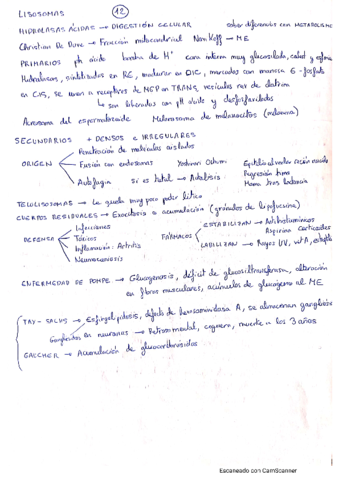 LISOSOMAS
12
HIDROLASAS ÁCIDAS → DIGESTIÓN CELULAR saber diferenciar con METABOLISMO
Christian De Duve → Fracción mitocondrial Novikoff → ME
PRIMARIOS ph ácido bomba de H⁺ cara interna muy glucosilada, calcio y
Hidrolasas, sintetizadas en RE, maduran en DIC, marcadas con manosa 6-fosfato
en CIS, se unen a receptores de MEP en TRANS, vesículas rev de clatrina
↳ son liberadas con pH ácido y desfosforiladas
Acrosoma del espermatozoide Melanosoma de melanocitos (melanina)
SECUNDARIOS + DENSOS e IRREGULARES
ORIGEN
Penetración de matrículas aislados
Fusión con endosomas Yoshinori Ohsumi
Autofagia Si es total → Autolisis
Epitelio
Regresión
Mama tras lactancia
TELOLISOSOMAS → Le queda muy poco poder lítico
CUERPOS RESIDUALES → Exocitosis o acumulación (gránulos de lipofucsina)
DEFENSA
Infecciones
Tóxicos
Inflamación: Artritis
FÁRMACOS
ESTABILIZAN → Antihistamínicos
Aspirina Corticoides
LABILIZAN → Rayos UV, vit A,
ENFERMEDAD DE POMPE → Glucogenosis, déficit de glucosiltransferasa, alteración
en fibras musculares, acúmulos de glucógeno al ME
TAY-SACHS → Esfingolipidosis, defecto de hexosaminidasa A, se almacenan gangliósidos
en neuronas → Retraso mental, ceguera, muerte a los 3 años
GAUCHER → Acumulación de glucocerebrósidos
Escaneado con CamScanner